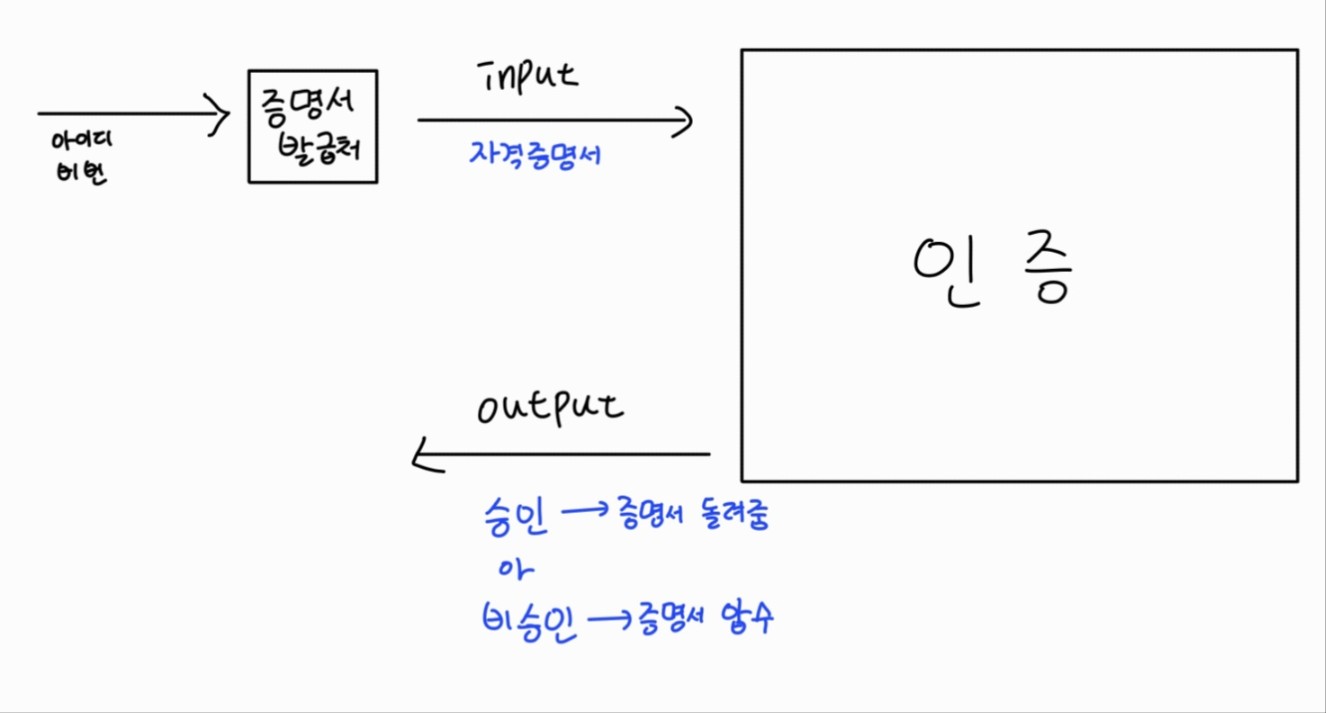 아이디
비번
증명서
발급처
input
자격증명서
인증
output
승인 → 증명서 돌려줌
아
비승인 → 증명서 압수